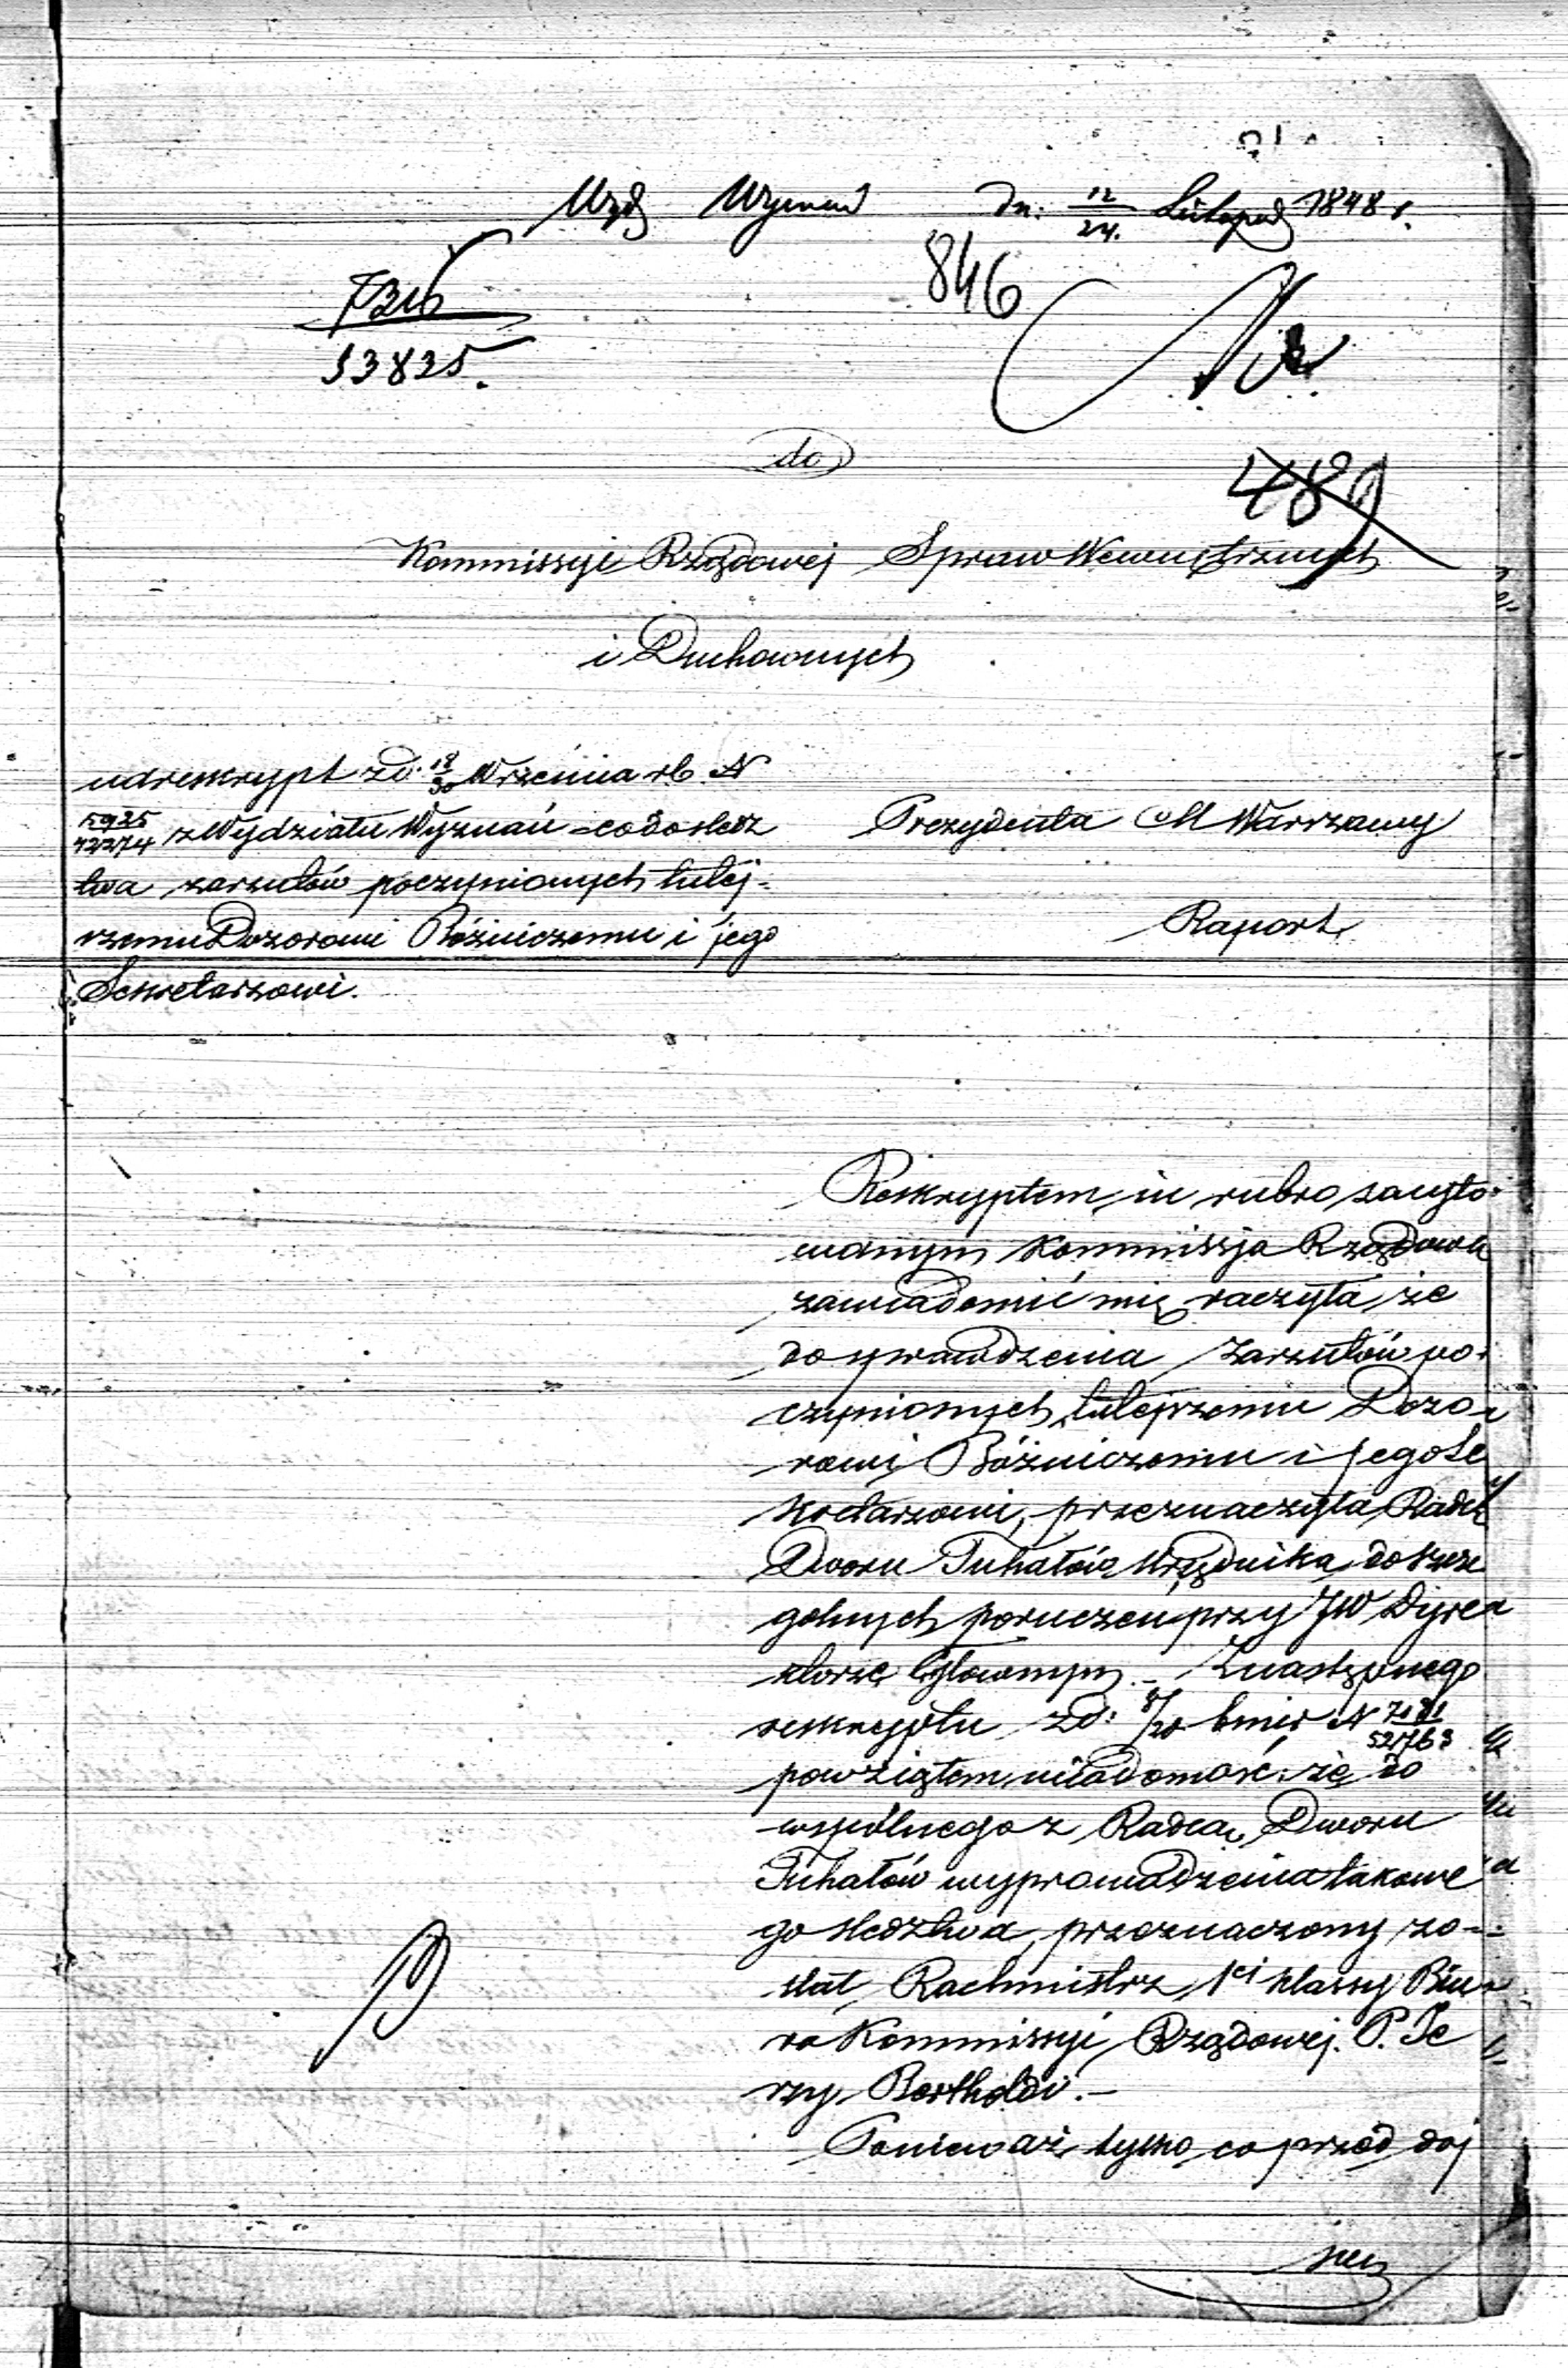 Wydz Wyznań dn: 12/24. Listopad 1848 r.
846
7316
53825.
do
489
Kommissyi Rządowej Spraw Wewnętrznych
i Duchownych
na reskrypt z d. 18/30 Września rb. N
5925/42274 z Wydziału Wyznań co do śledz
twa zarzutów poczynionych tutej=
szemu Dozorowi Bóżniczemu i jego
Sekretarzowi.
Prezydenta M Warszawy
Raport
Reskryptem in rubro zacyto=
wanym Kommissja Rządowa
zawiadomić mię raczyła, że
do sprawdzenia zarzutów po=
czynionych tutejszemu Dozo=
rowi Bóżniczemu i jego Se
kretarzowi, przeznaczyła Radcę
Dworu Tuhałów Urzędnika do szcze
gólnych poruczeń przy JW Dyre=
ktorze Głównym. – Z następnego
reskryptu z d: 8/20 b m i r N 7181/52763
powziąłem wiadomość, że do
wspólnego z Radcą Dworu
Tuhałów wyprowadzenia takowe
go śledztwa, przeznaczony zo=
stał Rachmistrz 1ej klassy Biu=
ra Kommissyi Rządowej. P. Je
rzy Bertholdi. –
Ponieważ tylko co przed doj